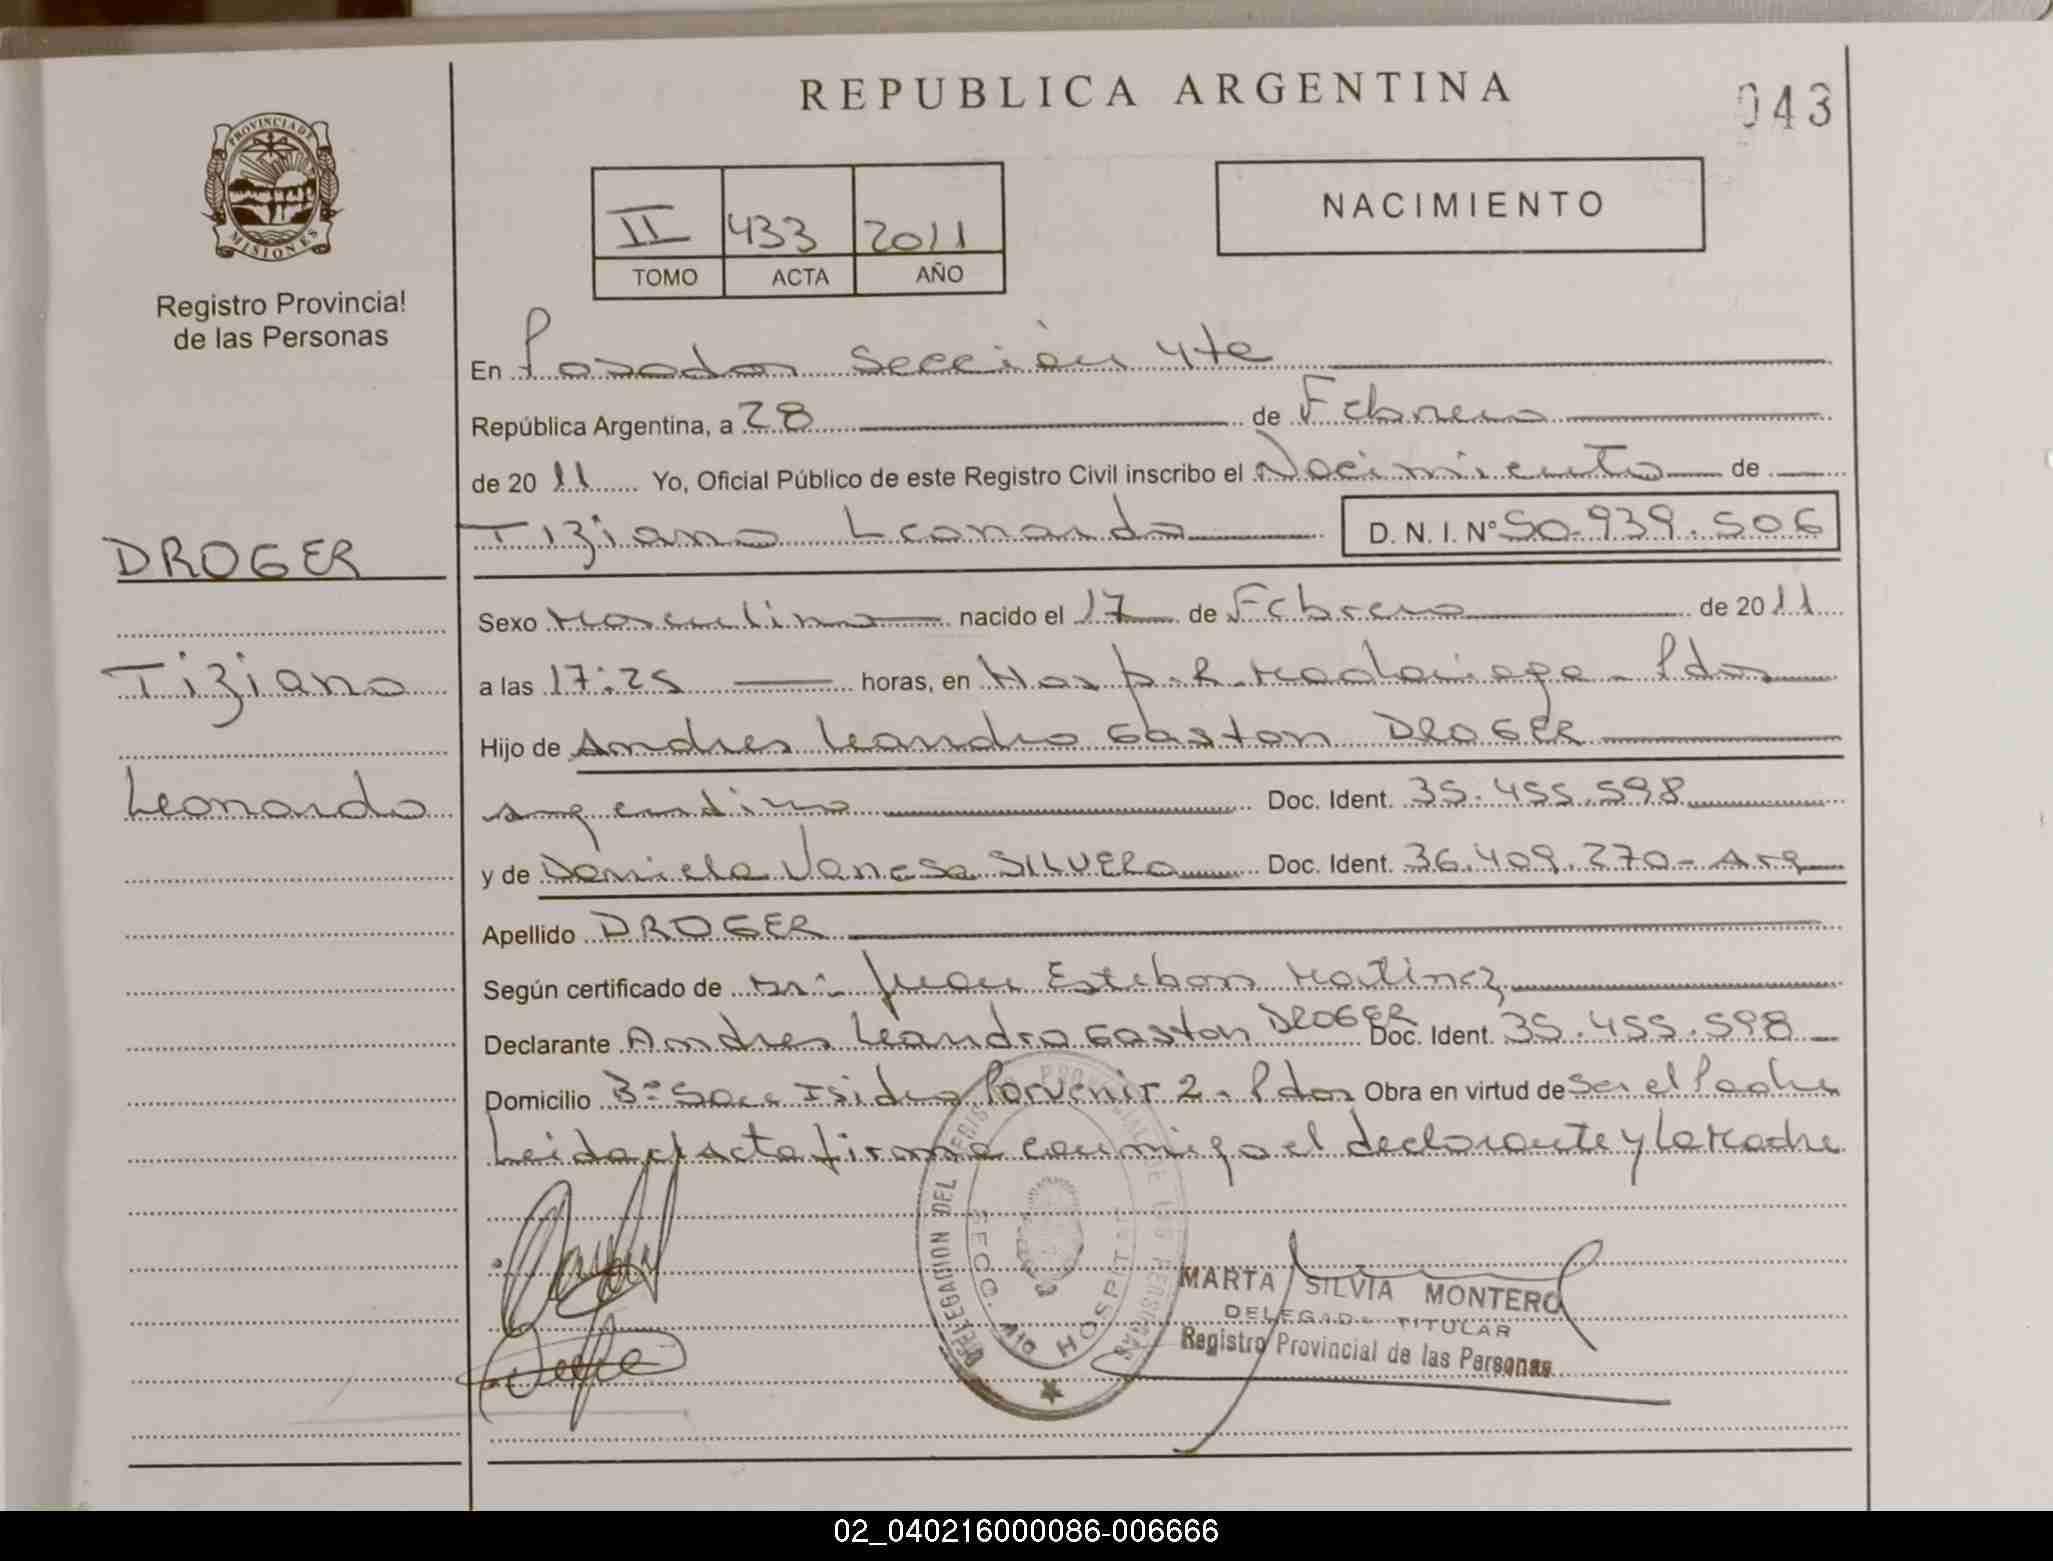 REPUBLICA ARGENTINA
043
PROVINCIA DE
MISIONES
Registro Provincial
de las Personas
II 433 2011
TOMO ACTA AÑO
NACIMIENTO
En Posadas Sección 4te
República Argentina, a 28 de Febrero
de 2011 Yo, Oficial Público de este Registro Civil inscribo el Nacimiento de
Tiziano Leonardo D. N. I. N° 50.939.506
DROGER
Tiziano
Leonardo
Sexo Masculino nacido el 17 de Febrero de 2011
a las 17:25 horas, en Hosp. R. Madariaga - Pdas
Hijo de Andres Leandro Gaston DROGER
argentino Doc. Ident. 35.455.598
y de Daniela Vanesa SILVERO Doc. Ident. 36.409.270 - Arg
Apellido DROGER
Según certificado de Dr. Juan Esteban Martinez
Declarante Andres Leandro Gaston DROGER Doc. Ident. 35.455.598
Domicilio B° San Isidro Porvenir 2 - Pdas Obra en virtud de Ser el Padre
Leida el acta firma conmigo el declarante y la Madre
DELEGACION DEL REGISTRO PROVINCIAL DE LAS PERSONAS
SECC. HOSPITAL
MARTA SILVIA MONTERO
DELEGADA TITULAR
Registro Provincial de las Personas
02_040216000086-006666